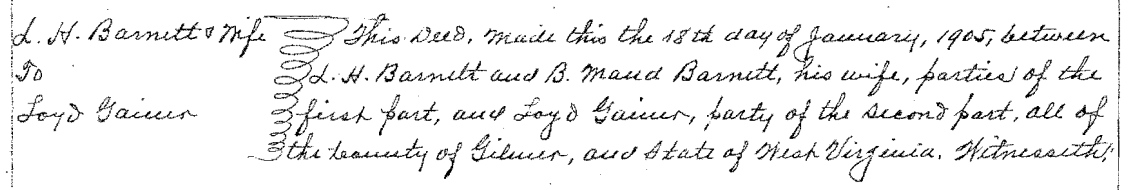 L. H. Barnett & Wife
To
Loyd Gainer
This Deed, made this the 18th day of January, 1905, between
L. H. Barnett and B. Maud Barnett, his wife, parties of the
first part, and Loyd Gainer, party of the second part, all of
the County of Gilmer, and State of West Virginia. Witnesseth: